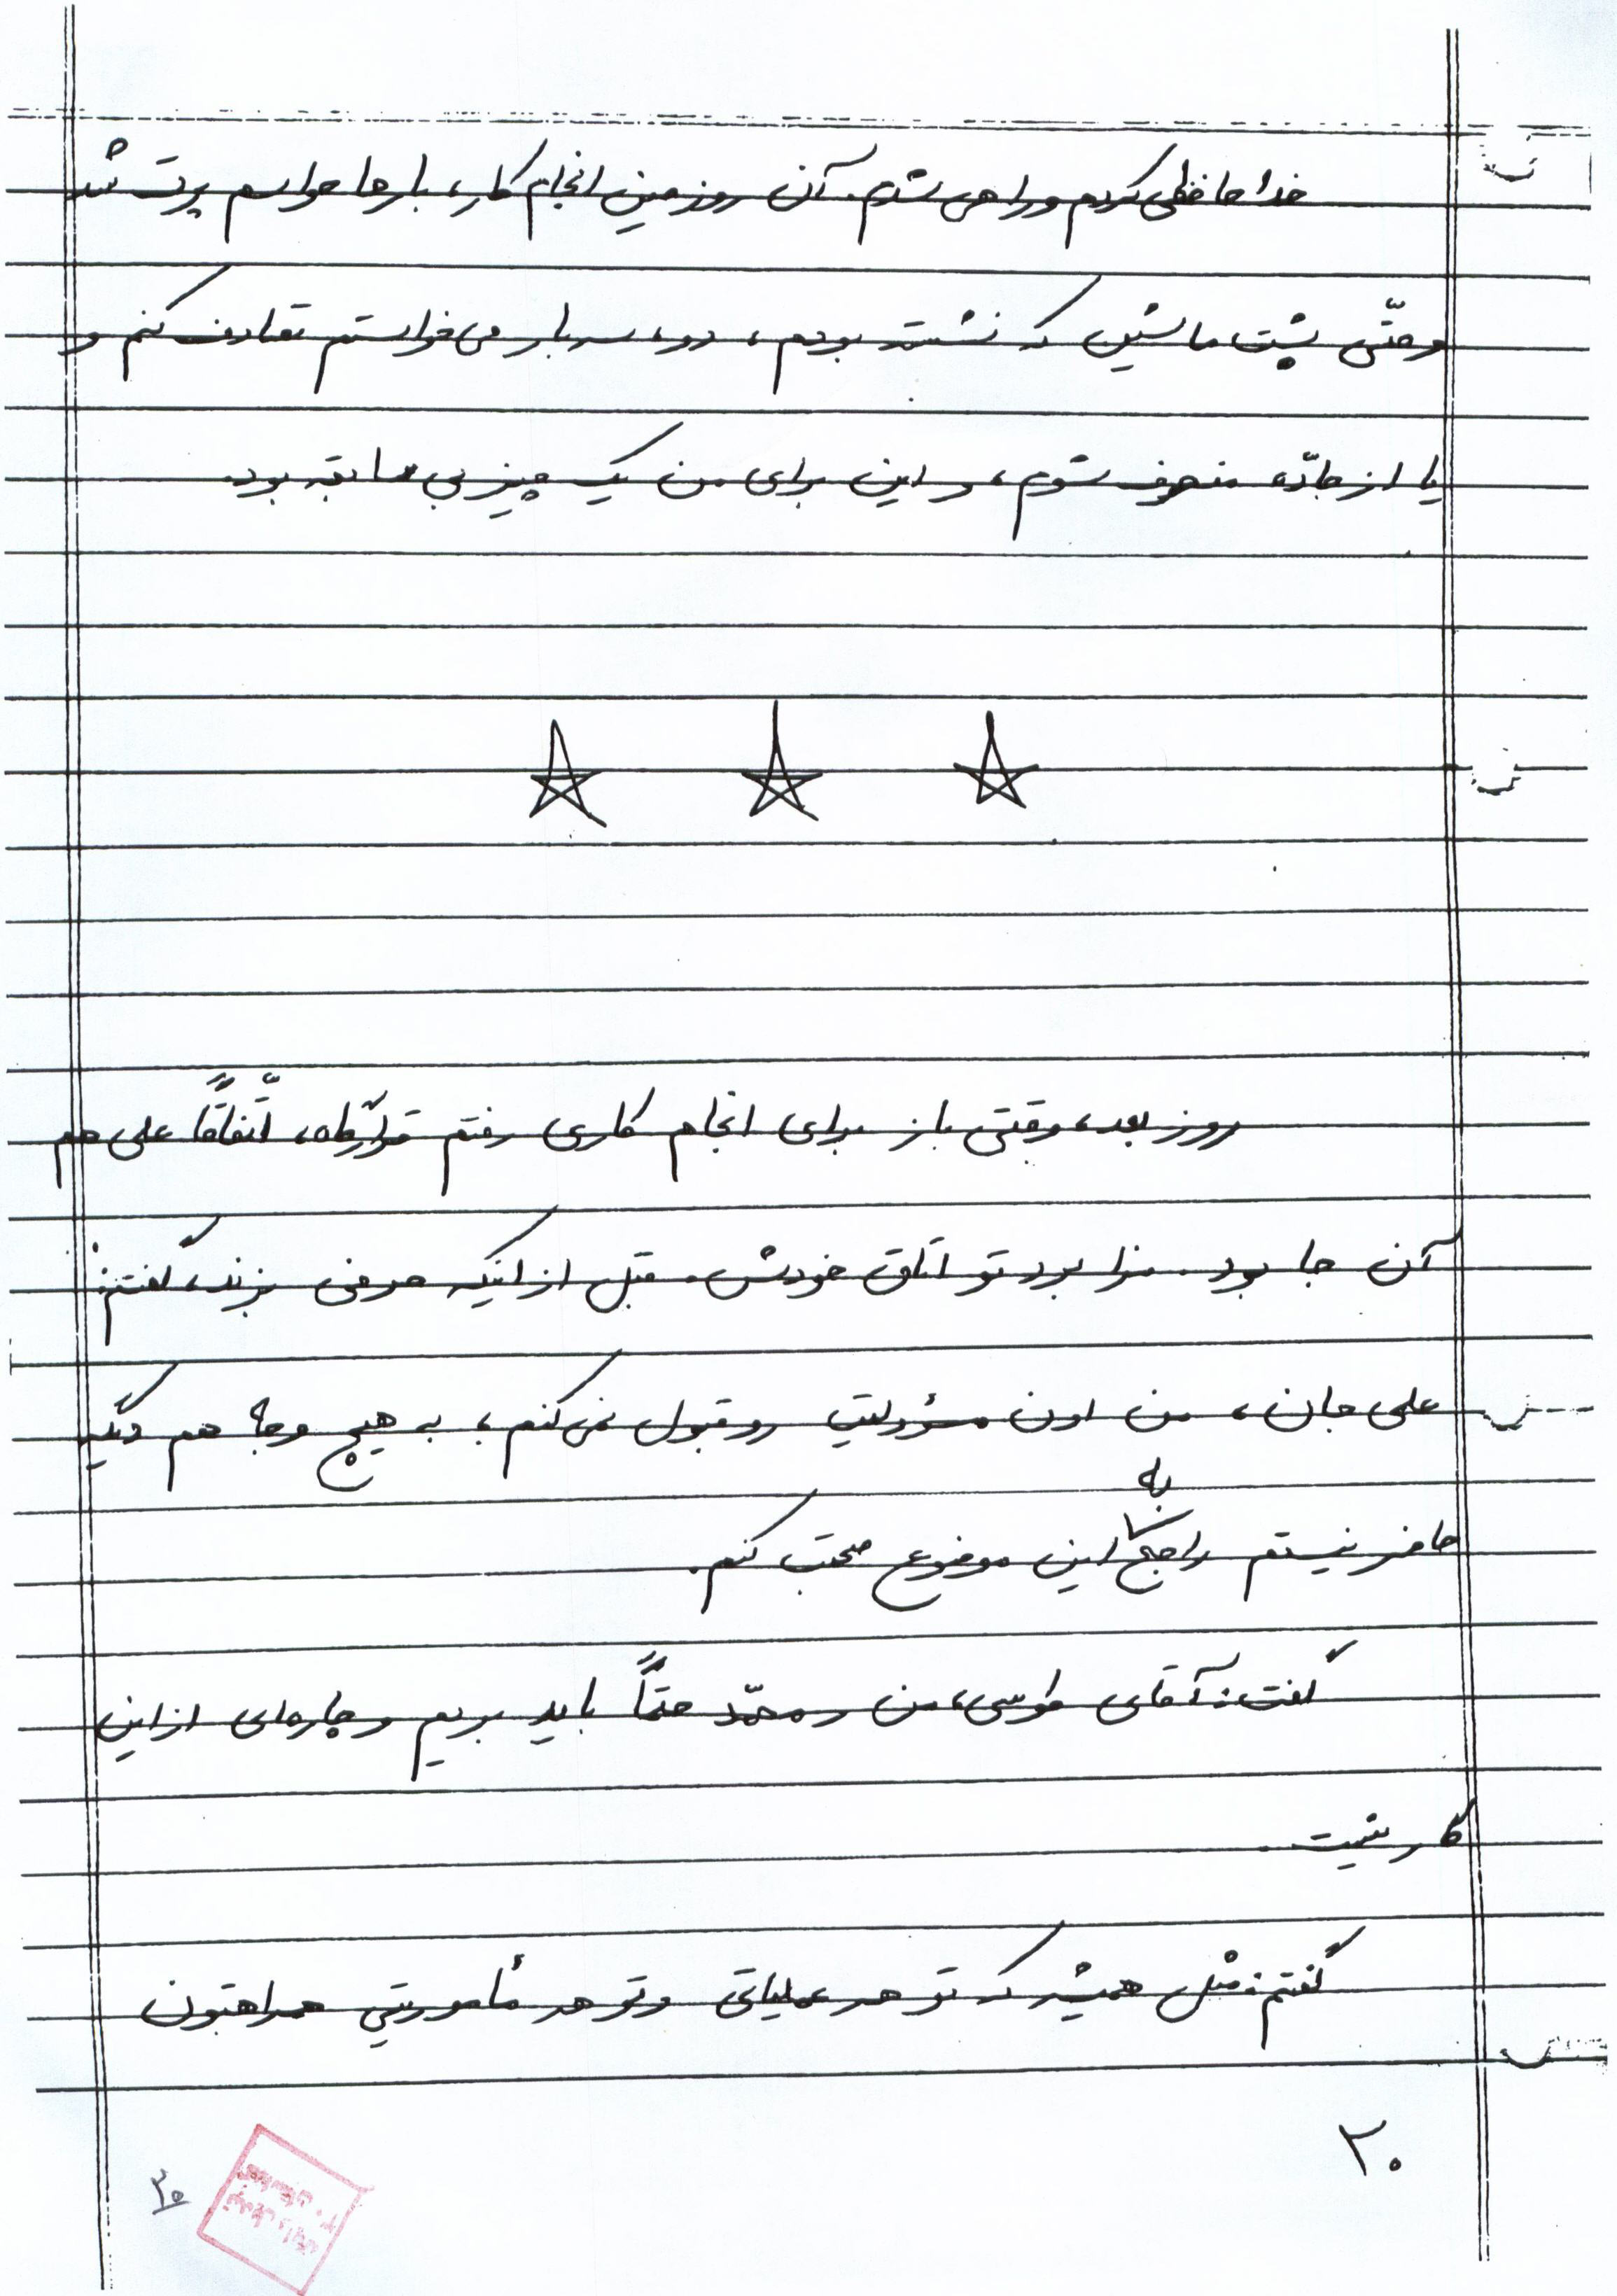 خداحافظی کردم و راهی شدم. آن روز حین انجام کار، بارها حواسم پرت شد
و حتّی پشت ماشین که نشسته بودم، دو، سه بار می‌خواستم تصادف کنم و
یا از جادّه منحرف شوم، و این برای من یک چیز بی سابقه بود.
روز بعد، وقتی باز برای انجام کاری رفتم قرارگاه، اتّفاقاً علی هم
آن جا بود. مرا برد تو اتاق خودش. قبل از اینکه حرفی بزند، گفتم:
علی جان، من اون مسؤولیت رو قبول نمی‌کنم، به هیچ وجه هم دیگه
حاضر نیستم راجع به این موضوع صحبت کنم.
گفت: آقای طوسی، من و محمّد حتماً باید بریم و چاره‌ای از این
کار نیست.
گفتم: مثل همیشه که تو هر عملیاتی و تو هر مأموریتی همراهتون
۲۰
۲۰